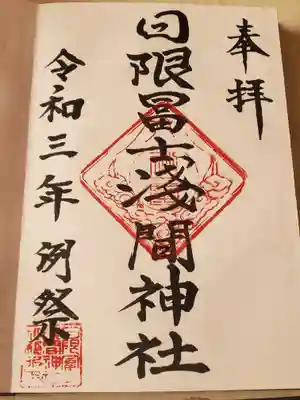 奉拝
日限冨士浅間神社
令和三年 例祭